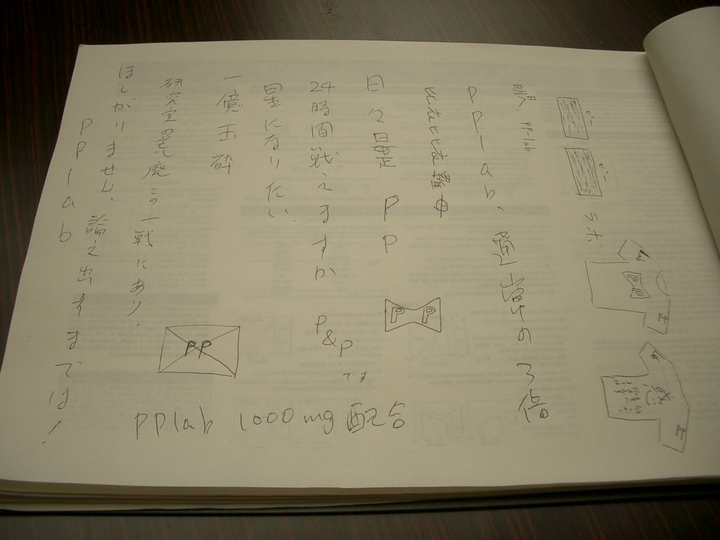 ラボ
PP-lab
PPlab、通常の3倍
日々是 PP
PP
24時間戦えますか P&Pです
星になりたい
一億玉砕
PP
研究室の荒廃この一戦にあり.
ほしがりません、論文出すまでは!
PPlab
PPlab 1000mg 配合